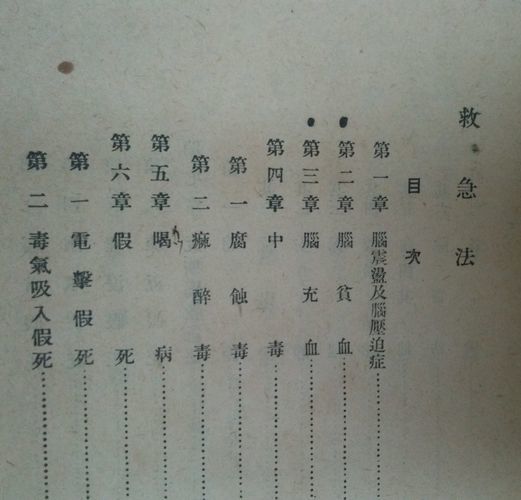 救急法
目次
第一章 腦震盪及腦壓迫症
第二章 腦貧血
第三章 腦充血
第四章 中毒
第一 腐蝕毒
第二 痲醉毒
第五章 暍病
第六章 假死
第一 電擊假死
第二 毒氣吸入假死